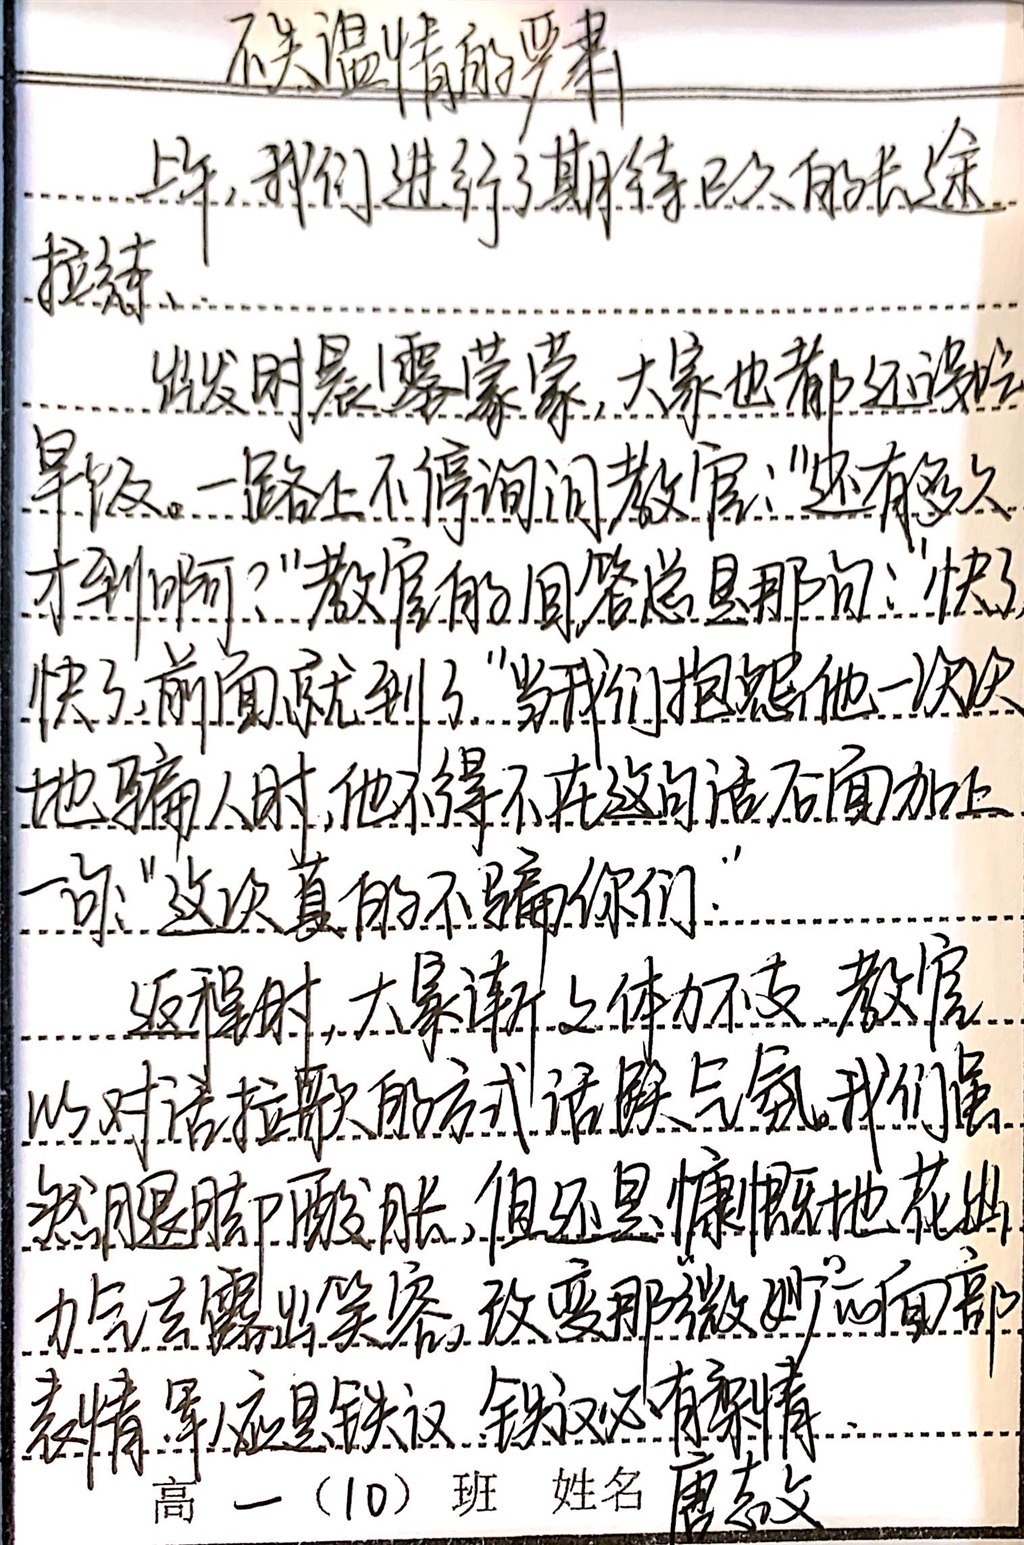 不失温情的严肃
上午,我们进行了期待已久的长途
拉练、
出发时晨露蒙蒙,大家也都还没吃
早饭。一路上不停询问教官:"还有多久
才到啊?"教官的回答总是那句:"快了,
快了,前面就到了."当我们抱怨他一次次
地骗人时,他不得不在这句话后面加上
一句:"这次真的不骗你们."
返程时,大家渐之体力不支.教官
以对话拉歌的方式活跃气氛。我们虽
然腿脚酸胀,但还是慷慨地花出
力气去露出笑容,改变那"微妙"的面部
表情.军人应是铁汉 铁汉必有柔情.
高一(10)班 姓名 唐志文